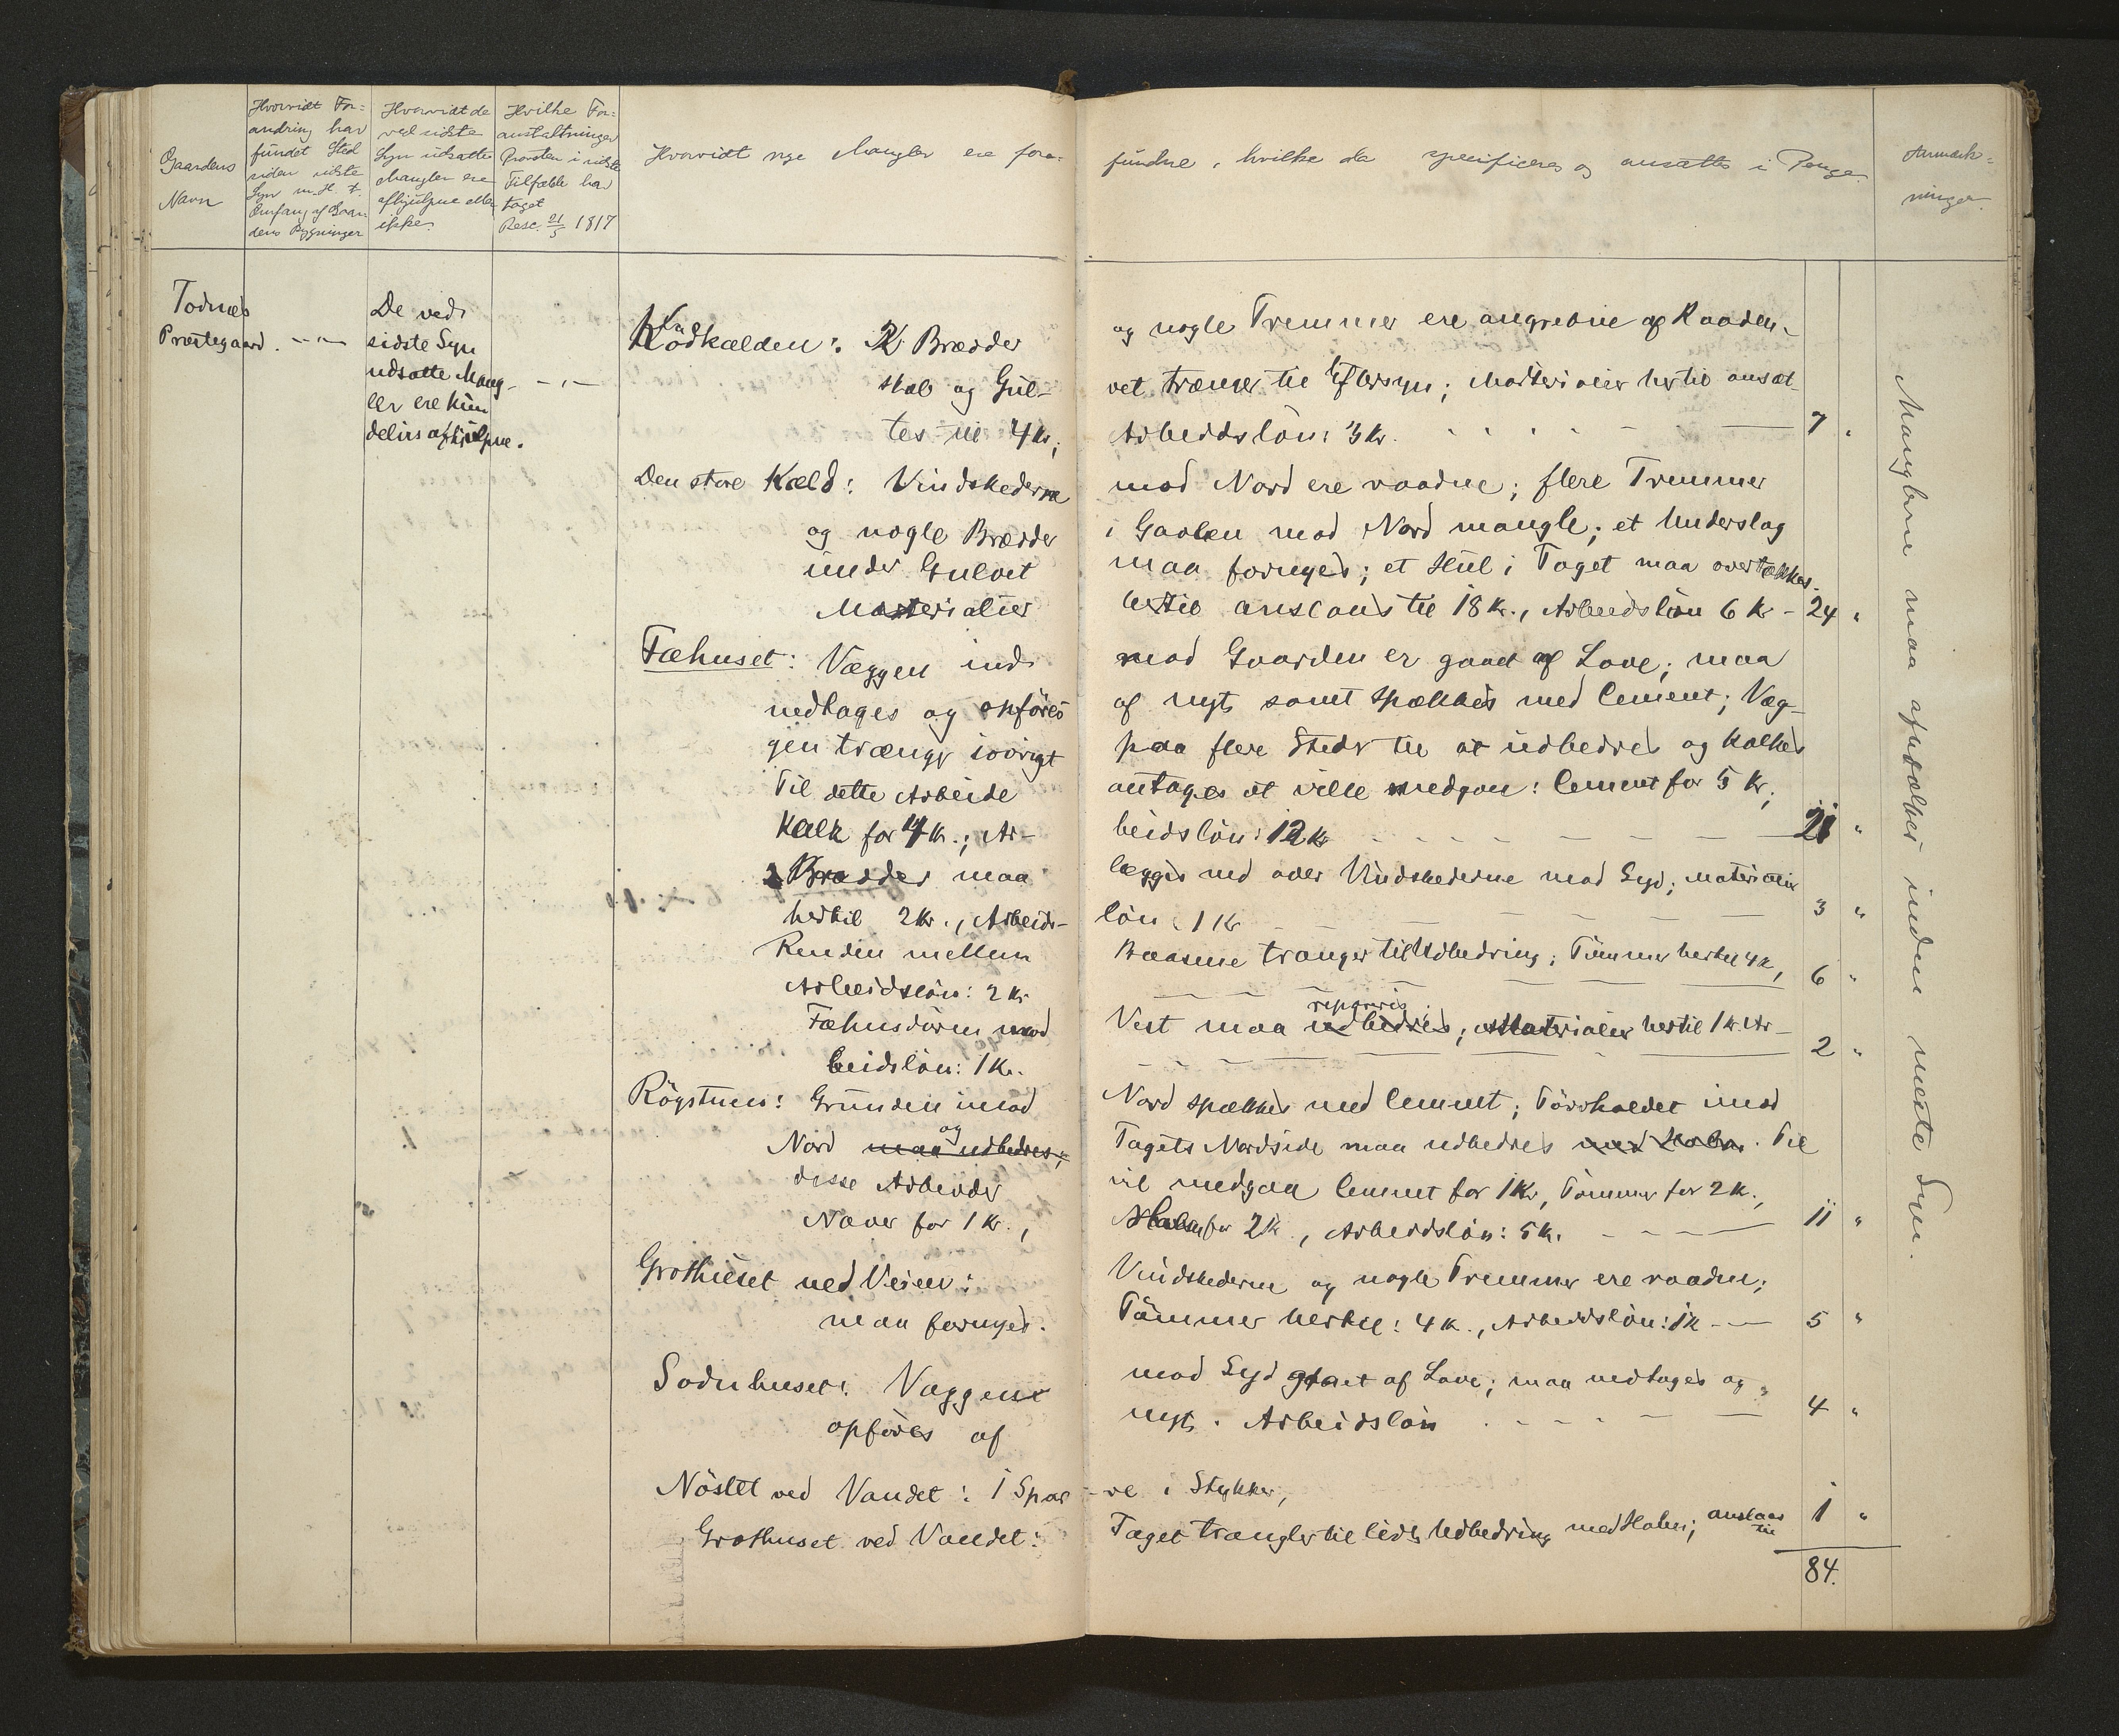 Gaardens
Navn
Hvorvidt For-
andring har
fundet Sted
siden sidste
Syn m. H. t.
Omfang af Gaar
dens Bygninger
Hvorvidt de
ved sidste
Syn udsatte
Mangler ere
afhjulpne eller
ikke.
Hvilke For-
anstaltninger
Provsten i sidste
Tilfælde har
taget
Resc. 21/5 1817
Hvorvidt nye Mangler ere fore-
fundne, hvilke da specificeres og ansættes i Penge.
Anmærk-
ninger.
Todnæs
Præstegaard. — " —
De ved
sidste Syn
udsatte Mang-
ler ere kun
delvis afhjulpne.
— " —
Kødkælden: 2 Brædder og nogle Tremmer ere angrebne af Raaden-
skab og Gul- vet trænger til Eftersyn; Materialier hertil ansæt-
tes til 4 Kr., Arbeidsløn: 3 Kr. 7 "
Den store Kæld: Vindskederne mod Nord ere raadne; flere Tremmer
og nogle Brædder i Gavlen mod Nord mangle; et Underslag
under Gulvet maa fornyes; et Hul i Taget maa overtækkes.
Materialier hertil anslaaes til 18 Kr., Arbeidsløn 6 Kr - 24 "
Fæhuset: Væggen ind mod Gaarden er gaaet af Lave; maa
nedtages og opføres af nyt samt spækkes med Cement; Væg-
gen trænger iøvrigt paa flere Steder til at udbedres og kalkes
Til dette Arbeide antages at ville medgaa: Cement for 5 Kr.,
Kalk for 4 Kr.; Ar- beidsløn: 12 Kr 21 "
2 Brædder maa lægges ned over Vindskederne mod Syd; Materialier
hertil 2 Kr., Arbeids- løn: 1 Kr 3 "
Renden mellem Baasene trænger til Udbedring; Tømmer hertil 4 Kr,
Arbeidsløn: 2 Kr 6 "
Fæhusdøren mod Vest maa udbedres repareres; Materialier hertil 1 Kr. Ar-
beidsløn: 1 Kr. 2 "
Røgstuen: Grunden imod Nord spækkes med Cement; Tørvholdet imod
Nord maa udbedres; og Tagets Nordside maa udbedres med Halm. Til
disse Arbeider vil medgaa Cement for 1 Kr, Tømmer for 2 Kr.,
Næver for 1 Kr., Halm for 2 Kr., Arbeidsløn: 5 Kr. 11 "
Grothuset ved Veien: Vindskederne og nogle Tremmer ere raadne;
maa fornyes. Tømmer hertil: 4 Kr., Arbeidsløn: 1 Kr — 5 "
Sodnhuset: Væggene mod Syd gaaet af Lave; maa nedtages og
opføres af nyt. Arbeidsløn 4 "
Nøstet ved Vandet: 1 Spær-re i Stykker,
Grothuset ved Vandet: Taget trænger til lidt Udbedring med Halm; anslaaes til 1 "
84.
Manglerne maa afhjælpes inden næste Syn.